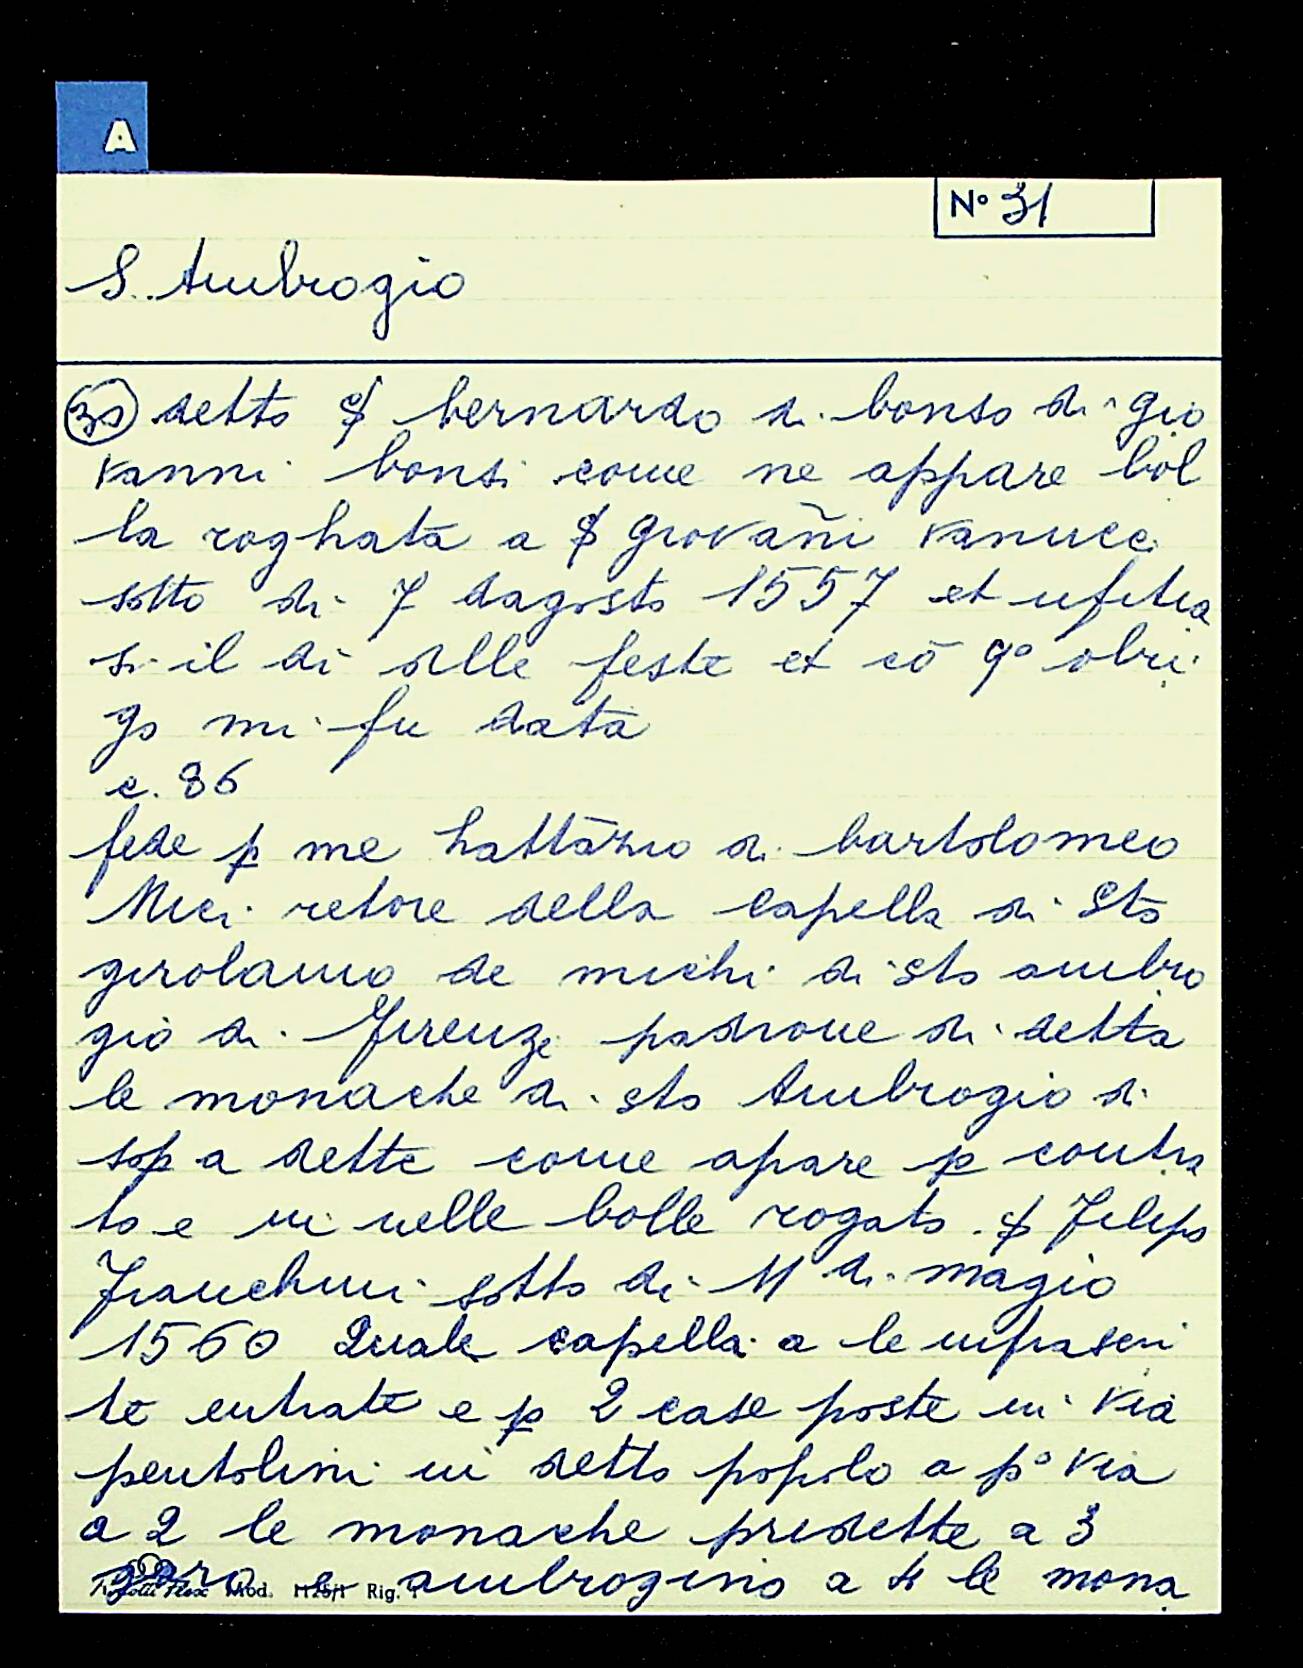 A
N° 31
S. Ambrogio
30 detto $ bernardo di bonso di gio
vanni bonsi come ne appare bol
la roghata a $ Giovañi Vanucci
sotto di 7 dagosto 1557 et ufitia
si il di delle feste et cō qo obri
go mi fu data
c. 86
fede p me di bartolomeo
Mici retore della capella di Sto
girolamo de michi di sto ambro
gio di Firenze padrone di detta
le monache di sto Ambrogio di
sop a dette come apare p contra
to e in nelle bolle rogato $ Filipo
Franchini sotto di 11 di magio
1560 Quale capella a le infrascri
te entrate e p 2 case poste in via
pentolini in detto popolo a po via
a 2 le monache predette a 3
ambrogino a 4 le mona
Mod. 1125/1 Rig. 1